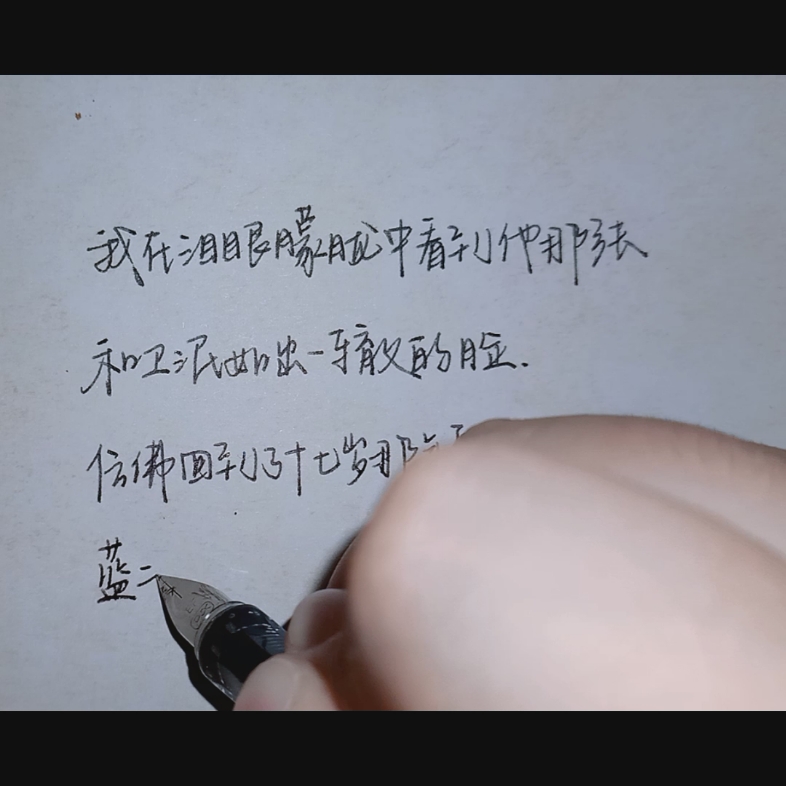 我在泪眼朦胧中看到他那张
和卫泯如出一辙的脸.
仿佛回到了十七岁那
蓝